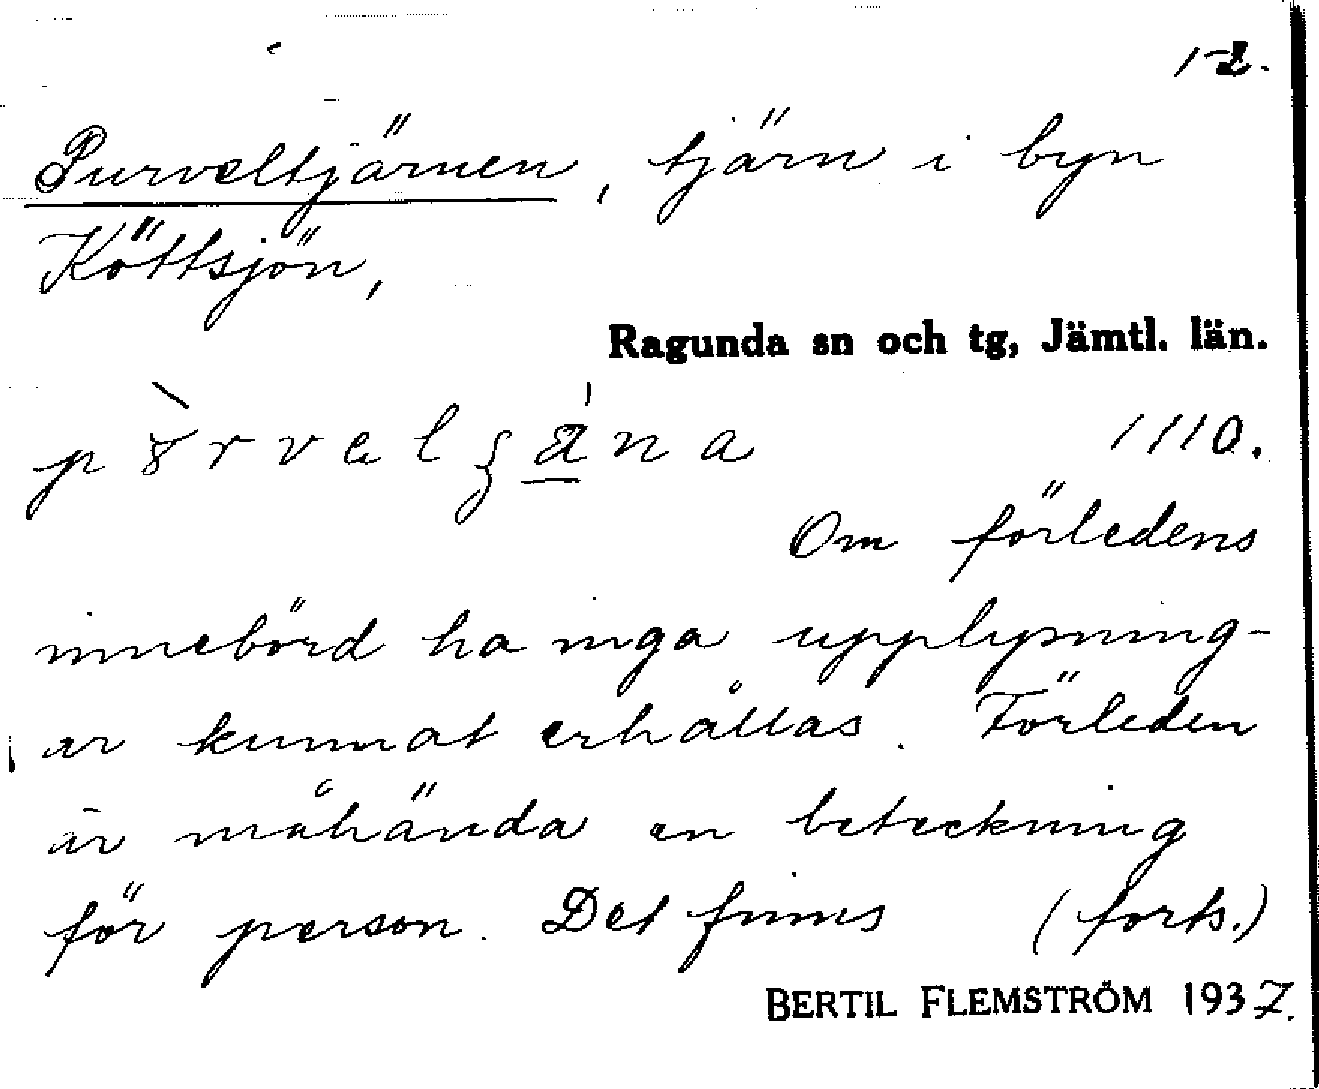 1-2.
Purveltjärnen, tjärn i byn
Köttsjön,
Ragunda sn och tg, Jämtl. län.
1110.
Om förledens
innebörd ha inga upplysning-
ar kunnat erhållas. Förleden
är måhända en beteckning
för person. Det finns (forts.)
BERTIL FLEMSTRÖM 1937.